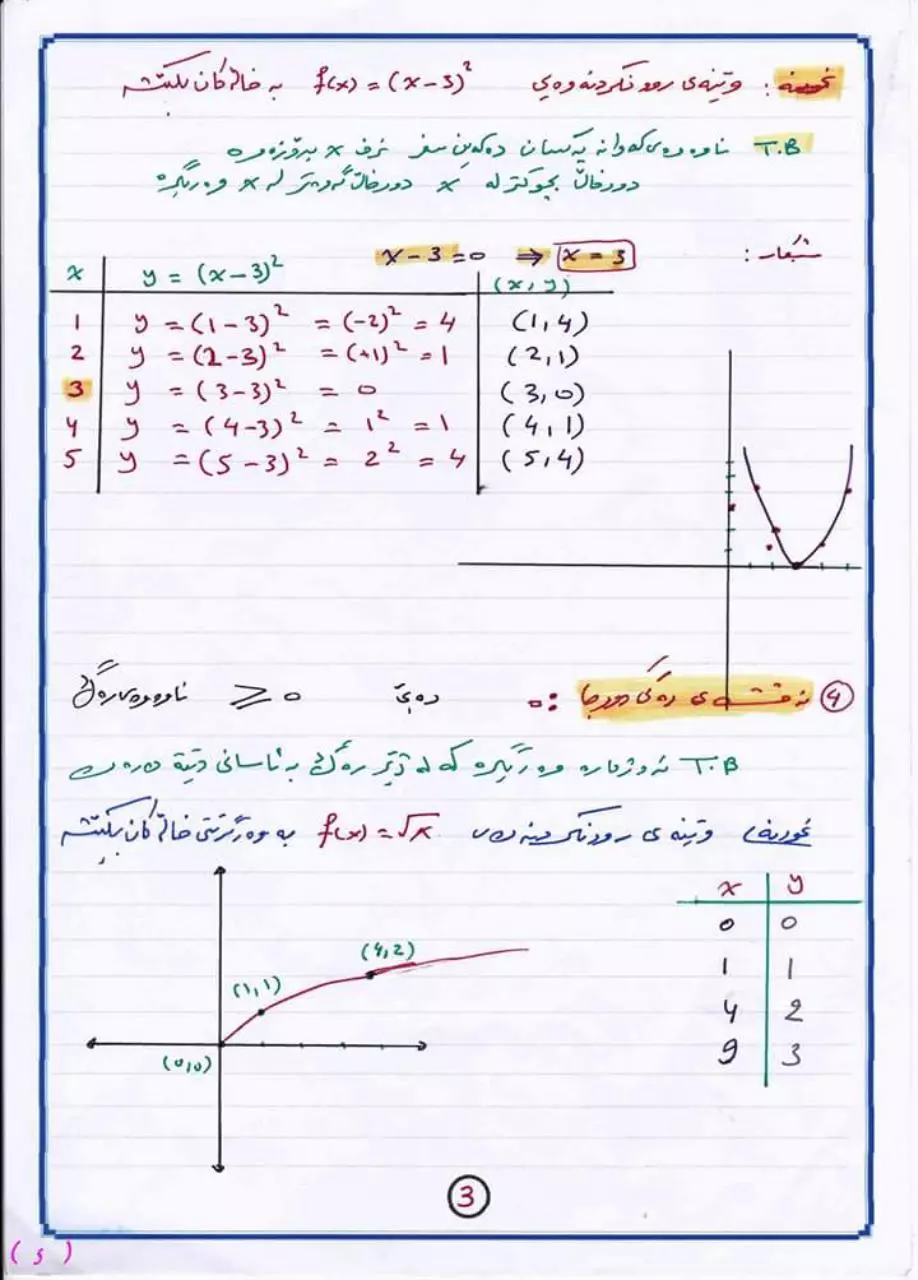 نموونە : وێنەی ڕوونکردنەوەی f(x) = (x-3)² بە خاڵەکان بکێشە
T.B ناوەوەی کەوانە یەکسان دەکەین سفر نرخ x بدۆزەوە
دوو خاڵ بچوکتر لە x دوو خاڵ گەورەتر لە x وەربگرە
شیکار : x - 3 = 0 ⇒ x = 3
x y = (x-3)² (x,y)
1 y = (1-3)² = (-2)² = 4 (1,4)
2 y = (2-3)² = (-1)² = 1 (2,1)
3 y = (3-3)² = 0 (3,0)
4 y = (4-3)² = 1² = 1 (4,1)
5 y = (5-3)² = 2² = 4 (5,4)
④ نەخشەی ڕەگی دووجا : دەبێ ناوەوەی ڕەگ ≥ 0
T.B ئەو ژمارە وەربگرە کە لە ژێر ڕەگ بە ئاسانی دێتە دەرەوە
نموونە) وێنەی ڕوونکردنەوەی f(x) = √x بە وەرگرتنی خاڵەکان بکێشە
x y
0 0
1 1
4 2
9 3
(4,2)
(1,1)
(0,0)
3
(5)